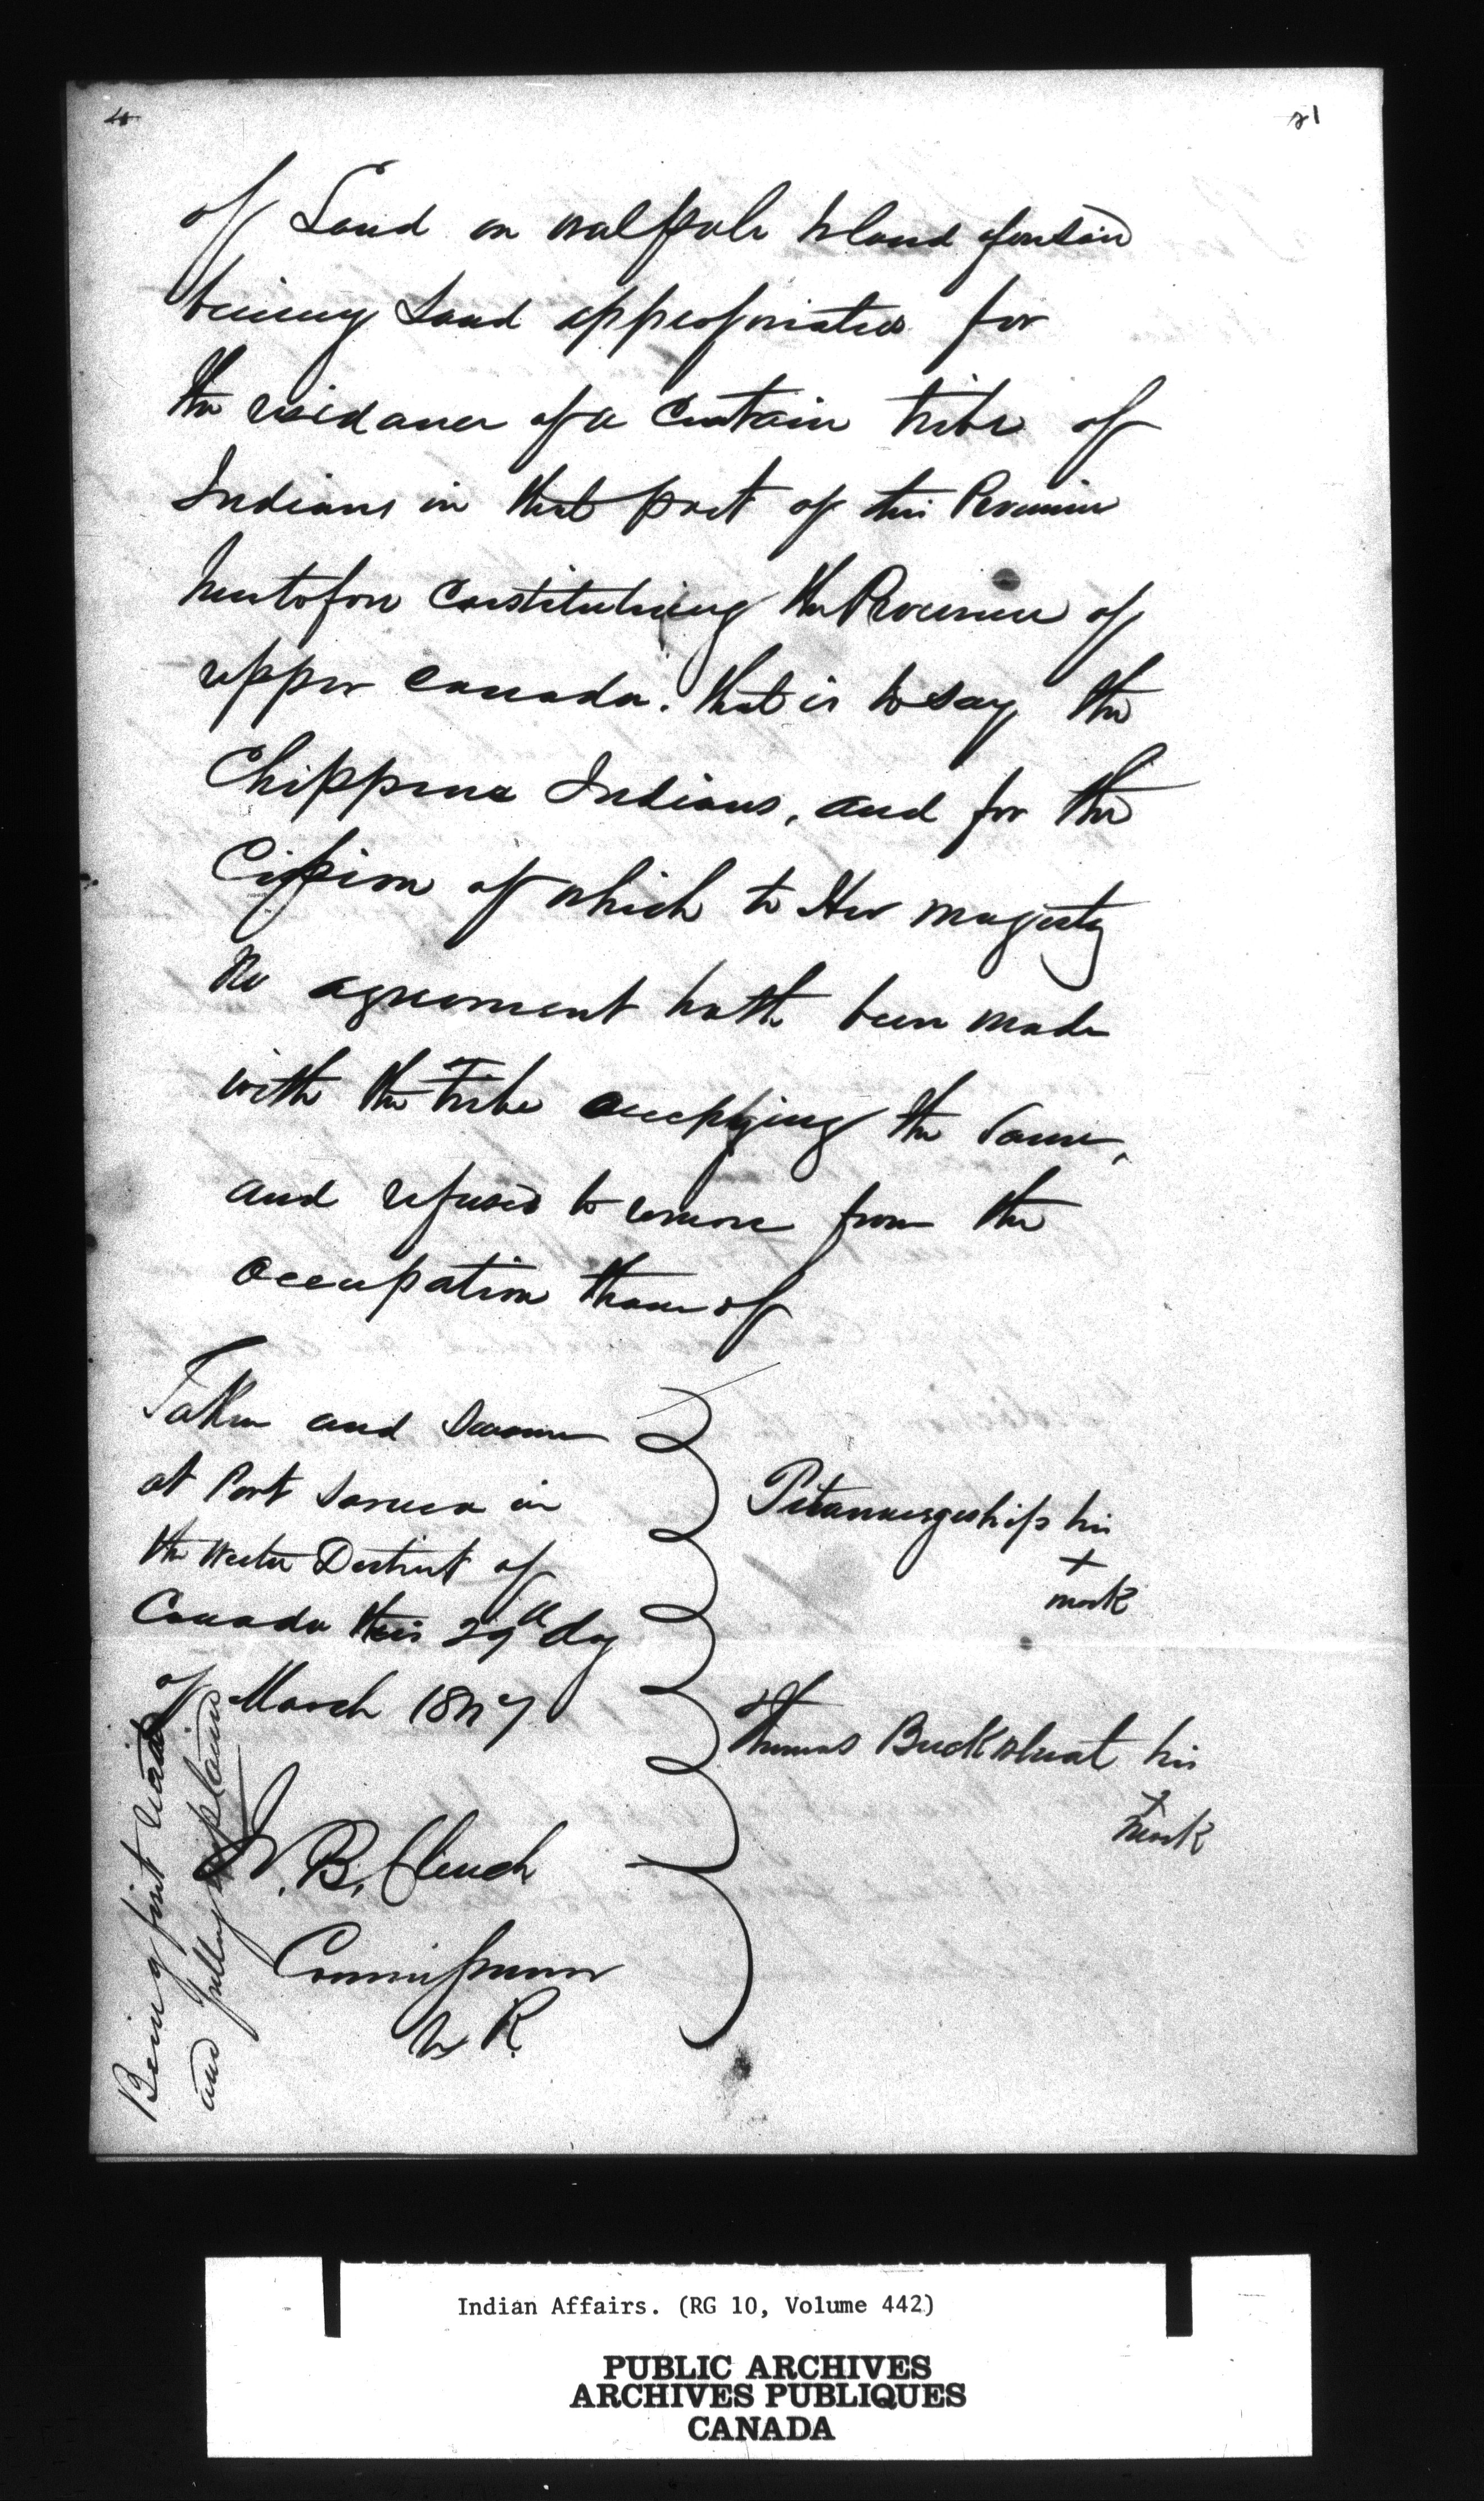 21
of Land on walpole Island foresaid
being Land appropriated for
the residance of a Certain tribe of
Indians in that part of this Province
heretofore Constituting the Province of
upper Canada. that is to say the
Chippewa Indians, and for the
Cission of which to Her Majesty
No agreement hath been made
with the Tribe occupying the Same,
and refused to remove from the
Occupation thereof
Taken and Sworn
at Port Sarnia in
the Western District of
Canada this 29th day
of March 1847
Being first read
and fully explained
J. B. Clench
Commissioner
his
+
mark
Thomas Buckwheat his
+
mark
Indian Affairs. (RG 10, Volume 442)
PUBLIC ARCHIVES
ARCHIVES PUBLIQUES
CANADA